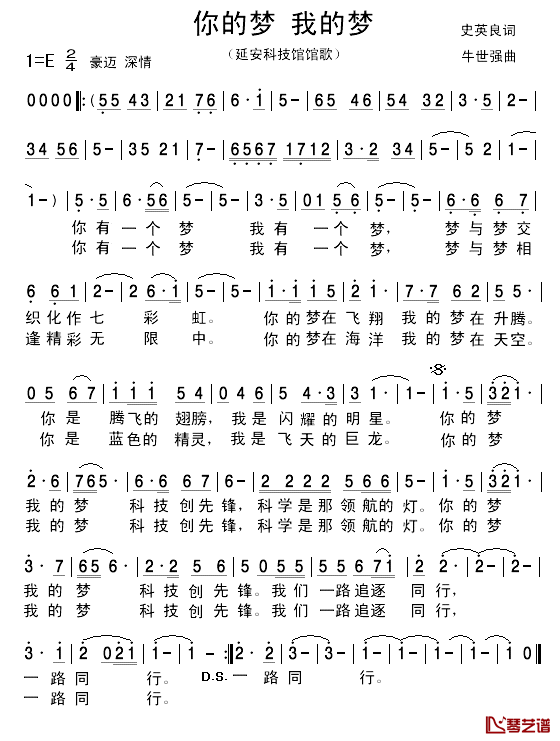 你的梦 我的梦
（延安科技馆馆歌）
史英良词
牛世强曲
1=E 2/4 豪迈 深情
0000‖:(55 43|21 76|6·1|5-|65 65|54 32|3 5|2-|
34 56|5-|35 21|7-|6567 1712|3·2 34|5-|5 2|1-|
1-)|5·5|6·56|5-|5-|3·5|01 56|5-|5-|6·6 6 7|
你有一个梦 我有一个梦， 梦与梦交
你有一个梦 我有一个梦， 梦与梦相
6 61|2-|2 6·1|5-|5-|1·1 1 5|2 1·|7·7 6 2|5-|5-|
织化作七 彩 虹。 你的梦在飞翔 我的梦在升腾。
逢精彩无 限 中。 你的梦在海洋 我的梦在天空。
05 67|111 54|046|5 4·3|3-|1-|1-|1·5|321·|
你是 腾飞的 翅膀，我是闪耀的明星。 你的梦
你是 蓝色的 精灵，我是飞天的巨龙。 你的梦
2·6|765·|6·6 67|5 6|4·4 45|6 53|2·|1·5|321·|
我的梦 科技创先锋，科学是那领航的灯。你的梦
我的梦 科技创先锋，科学是那领航的灯。你的梦
3·7|656·|2·2 2 5|6 5|5055|55 671|2 2|2-|2-|
我的梦 科技创先锋。我们一路追逐 同行，
我的梦 科技创先锋。我们一路追逐 同行，
3·1|2 021|1-|1-:‖2·2|3·3|1-|1-|1-|1 0‖
一路同 行。 D.S.一路 同 行。
一路同 行。
琴艺谱